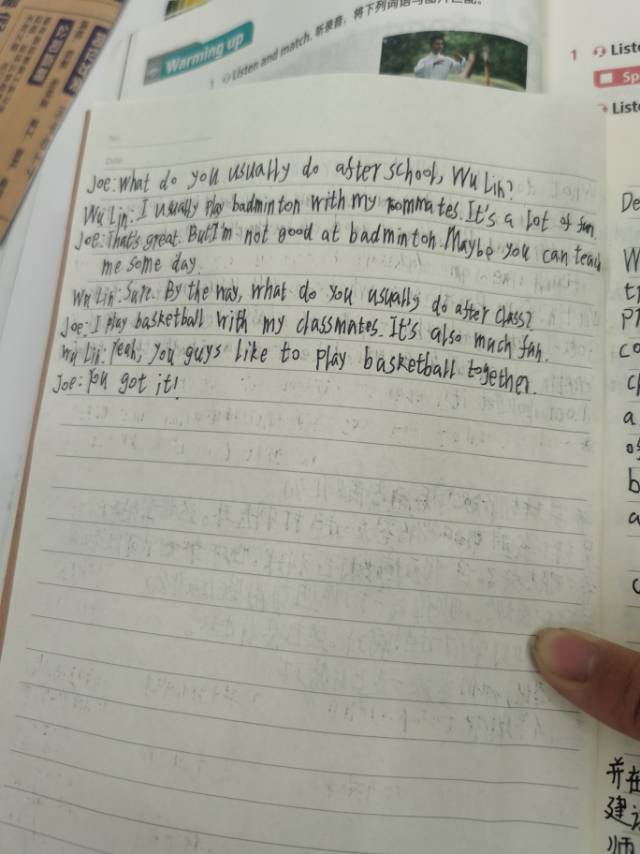 Warming up
1 Listen and match. 听录音，将下列词语与图片匹配。
1 Liste
Sp
Liste
No.
Date
Joe: What do you usually do after school, Wu Lin?
Wu Lin: I usually play badminton with my roommates. It's a lot of fun.
Joe: That's great. But I'm not good at badminton. Maybe you can teach
me some day.
Wu Lin: Sure. By the way, what do you usually do after class?
Joe: I play basketball with my classmates. It's also much fun.
Wu Lin: Yeah, you guys like to play basketball together.
Joe: You got it!
De
W
co
a
b
a
并在
建议
师